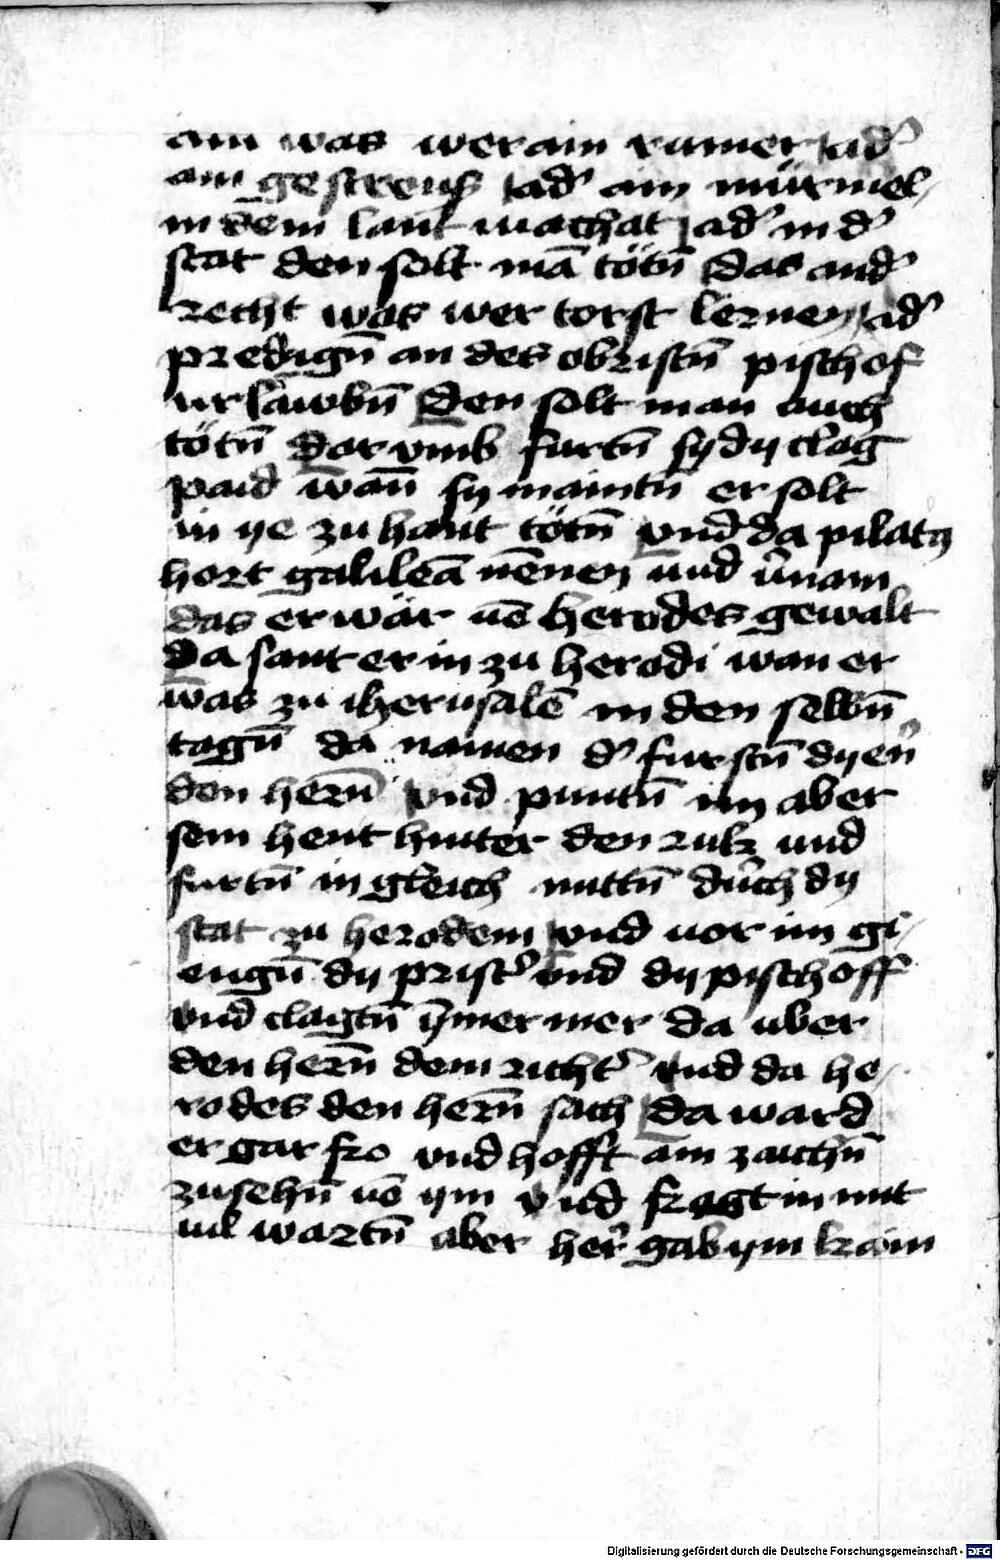 ain was wer ain rumer ad᾽
ain gestreuß ad᾽ ain mürmel-
in dem lant machat ad᾽ in d᾽
stat den solt mā tötn̄ Das and᾽
recht was wer torst lernen ad᾽
predign̄ an des obristn̄ pischof
urlawbn̄ Den solt man auch
tötn̄ Dar vmb furtn̄ sy dy clag
paid wan̄ sy maintn̄ er solt
in ye zu hant tötn̄ vnd da pilatꝯ
hort galileā nēnen und v̄nam
das er wär uō herodes gewalt
Da sant er in zu herodi wan er
was zu iherusalē in den selbn̄
tagn̄ da namen d᾽ furstn̄ dyen᾽
den hern̄ vnd puntn̄ im aber
sein hent hinter den rukz und
furtn̄ in gleich mittn̄ durch dy
stat zu herodem vnd uor im gi-
engn̄ dy prist᾽ vnd dy pyschoff
vnd clagtn̄ ȳmer mer da uber
den hern̄ dem richt᾽ vnd da he-
rodes den hern̄ sach Da ward
er gar fro vnd hofft ain zaichn̄
zusehn̄ uō ym vnd fragt in mit
uil wartn̄ aber her᾽ gab ym kain
Digitalisierung gefördert durch die Deutsche Forschungsgemeinschaft - DFG